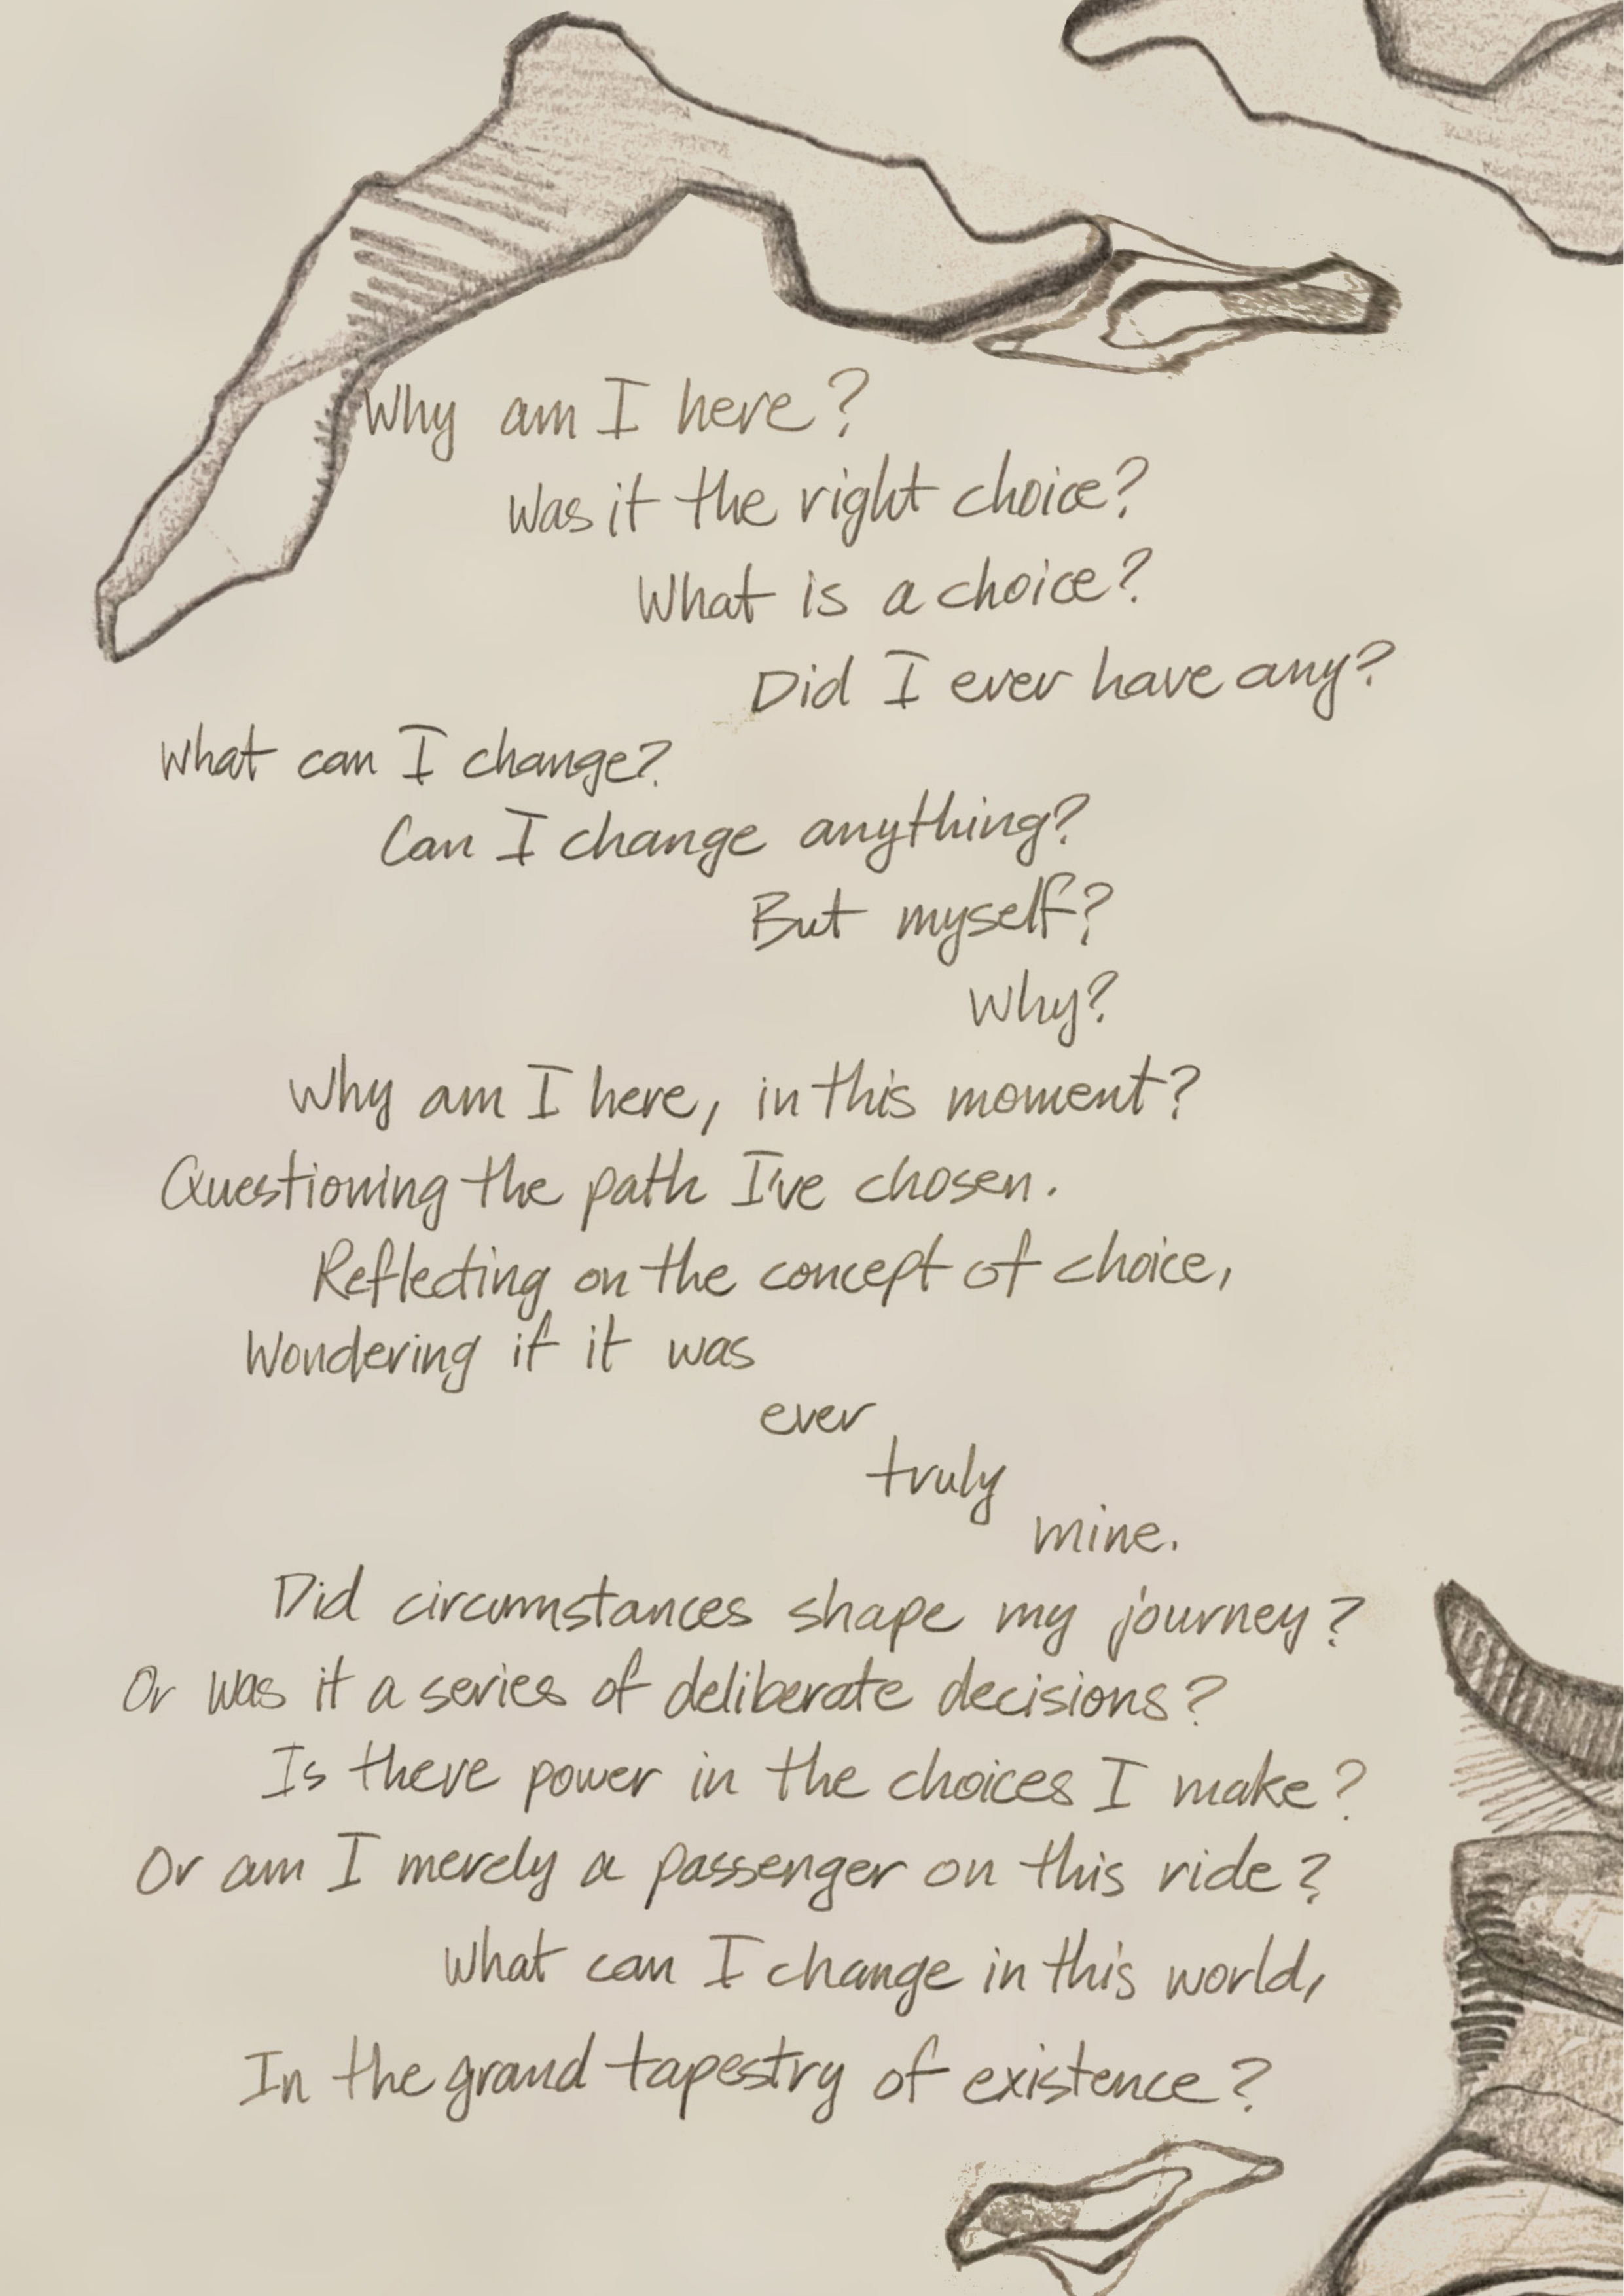 Why am I here?
Was it the right choice?
What is a choice?
Did I ever have any?
What can I change?
Can I change anything?
But myself?
Why?
Why am I here, in this moment?
Questioning the path I've chosen.
Reflecting on the concept of choice,
Wondering if it was
ever
truly
mine.
Did circumstances shape my journey?
Or was it a series of deliberate decisions?
Is there power in the choices I make?
Or am I merely a passenger on this ride?
What can I change in this world,
In the grand tapestry of existence?